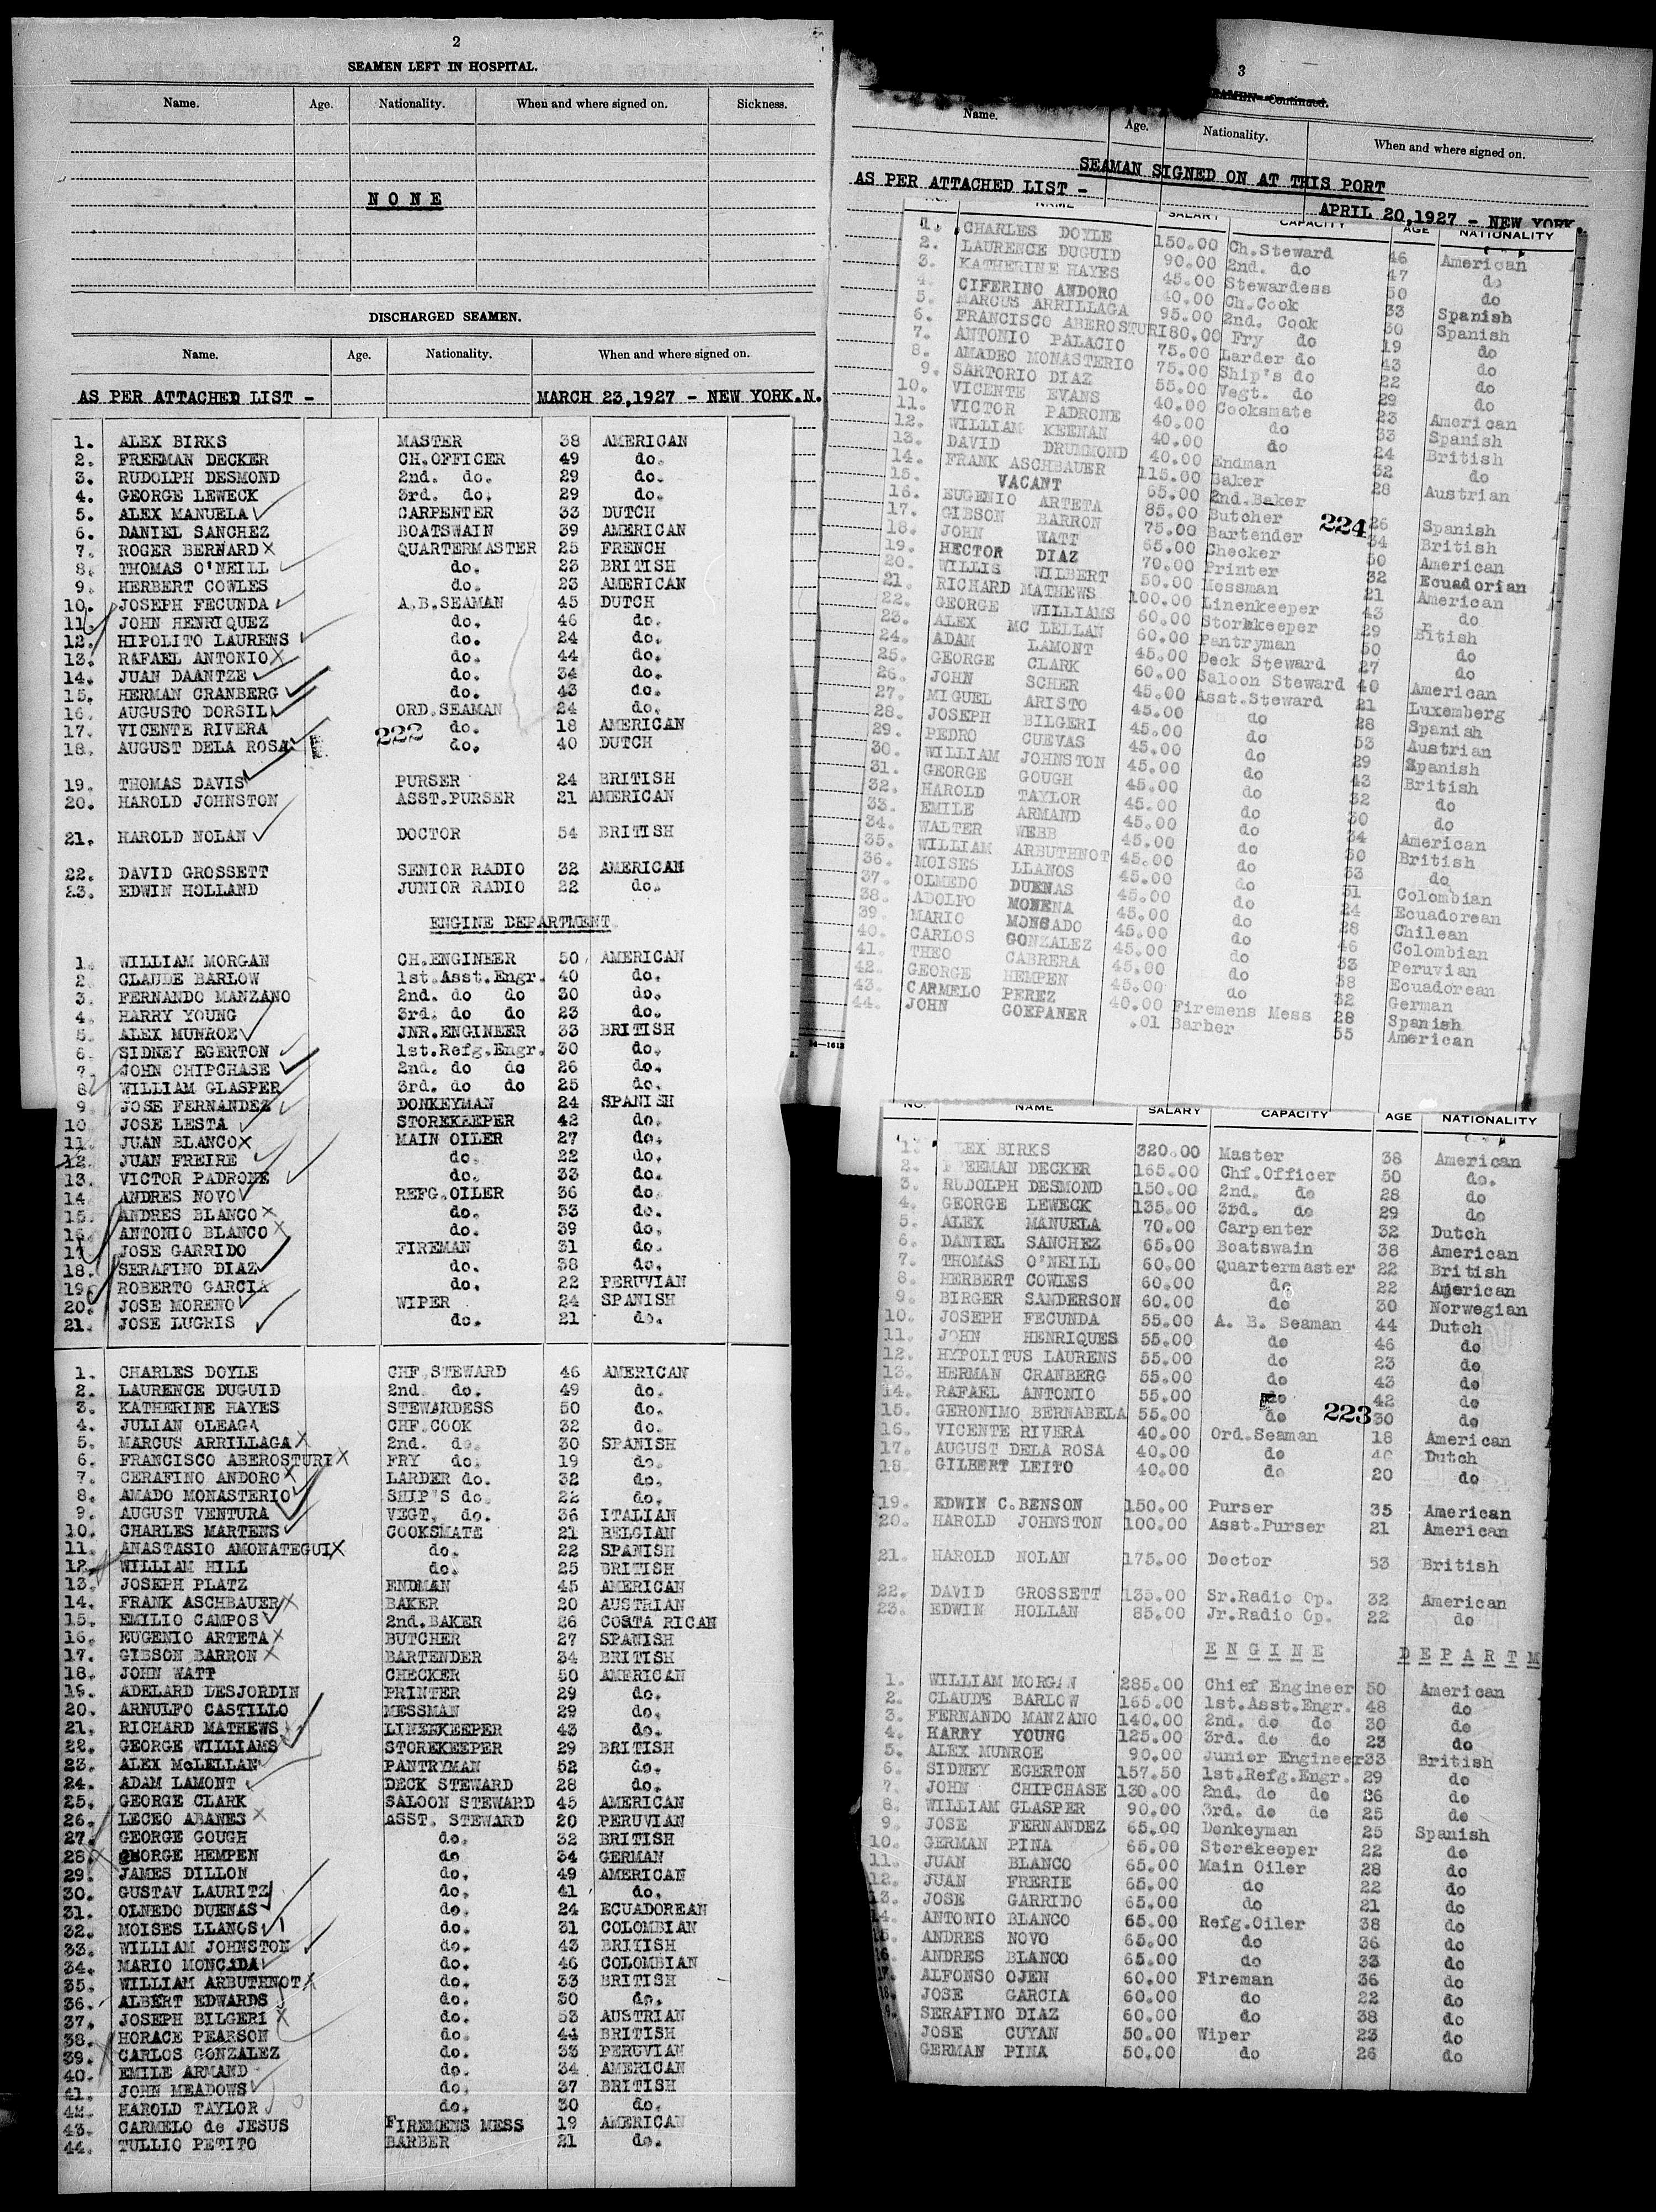 2
SEAMEN LEFT IN HOSPITAL.
Name. Age. Nationality. When and where signed on. Sickness.
NONE
DISCHARGED SEAMEN.
Name. Age. Nationality. When and where signed on.
AS PER ATTACHED LIST - MARCH 23,1927 - NEW YORK.N.
1. ALEX BIRKS MASTER 38 AMERICAN
2. FREEMAN DECKER CH.OFFICER 49 do.
3. RUDOLPH DESMOND 2nd. do. 29 do.
4. GEORGE LEWECK 3rd. do. 29 do.
5. ALEX MANUELA CARPENTER 33 DUTCH
6. DANIEL SANCHEZ BOATSWAIN 39 AMERICAN
7. ROGER BERNARD X QUARTERMASTER 25 FRENCH
8. THOMAS O'NEILL do. 23 BRITISH
9. HERBERT COWLES do. 23 AMERICAN
10. JOSEPH FECUNDA A.B.SEAMAN 45 DUTCH
11. JOHN HENRIQUEZ do. 46 do.
12. HIPOLITO LAURENS do. 24 do.
13. RAFAEL ANTONIO X do. 44 do.
14. JUAN DAANTZE do. 34 do.
15. HERMAN CRANBERG do. 43 do.
16. AUGUSTO DORSIL ORD.SEAMAN 24 do.
17. VICENTE RIVERA do. 18 AMERICAN
222
18. AUGUST DELA ROSA do. 40 DUTCH
19. THOMAS DAVIS PURSER 24 BRITISH
20. HAROLD JOHNSTON ASST.PURSER 21 AMERICAN
21. HAROLD NOLAN DOCTOR 54 BRITISH
22. DAVID GROSSETT SENIOR RADIO 32 AMERICAN
23. EDWIN HOLLAND JUNIOR RADIO 22 do.
ENGINE DEPARTMENT
1. WILLIAM MORGAN CH.ENGINEER 50 AMERICAN
2. CLAUDE BARLOW 1st.Asst.Engr. 40 do.
3. FERNANDO MANZANO 2nd. do do 30 do.
4. HARRY YOUNG 3rd. do do 23 do.
5. ALEX MUNROE JNR.ENGINEER 33 BRITISH
6. SIDNEY EGERTON 1st.Refg.Engr. 30 do.
7. JOHN CHIPCHASE 2nd. do do 26 do.
8. WILLIAM GLASPER 3rd. do do 25 do.
9. JOSE FERNANDEZ DONKEYMAN 24 SPANISH
10 JOSE LESTA STOREKEEPER 42 do.
11. JUAN BLANCO X MAIN OILER 27 do.
12. JUAN FREIRE do. 22 do.
13. VICTOR PADRONE do. 33 do.
14 ANDRES NOVO REFG.OILER 36 do
15. ANDRES BLANCO X do. 33 do.
16. ANTONIO BLANCO X do. 39 do.
17. JOSE GARRIDO FIREMAN 31 do.
18. SERAFINO DIAZ do. 38 do.
19. ROBERTO GARCIA do. 22 PERUVIAN
20. JOSE MORENO WIPER 24 SPANISH
21. JOSE LUGRIS do. 21 do.
1. CHARLES DOYLE CHF STEWARD 46 AMERICAN
2. LAURENCE DUGUID 2nd do. 49 do.
3. KATHERINE HAYES STEWARDESS 50 do.
4. JULIAN OLEAGA CHF.COOK 32 do.
5. MARCUS ARRILLAGA X 2nd. do. 30 SPANISH
6. FRANCISCO ABEROSTURI X FRY do. 19 do.
7. CERAFINO ANDORO X LARDER do. 32 do.
8. AMADO MONASTERIO SHIP'S do. 22 do.
9. AUGUST VENTURA VEGT. do. 36 ITALIAN
10. CHARLES MARTENS COOKSMATE 21 BELGIAN
11. ANASTASIO AMONATEGUI X do. 22 SPANISH
12. WILLIAM HILL do. 25 BRITISH
13. JOSEPH PLATZ ENDMAN 45 AMERICAN
14. FRANK ASCHBAUER X BAKER 20 AUSTRIAN
15. EMILIO CAMPOS 2nd.BAKER 26 COSTA RICAN
16. EUGENIO ARTETA X BUTCHER 27 SPANISH
17. GIBSON BARRON X BARTENDER 34 BRITISH
18. JOHN WATT CHECKER 50 AMERICAN
19. ADELARD DESJORDIN PRINTER 29 do.
20. ARNULFO CASTILLO MESSMAN 29 do.
21. RICHARD MATHEWS LINENKEEPER 43 do.
22. GEORGE WILLIAMS STOREKEEPER 29 BRITISH
23. ALEX McLELLAN PANTRYMAN 52 do.
24. ADAM LAMONT DECK STEWARD 28 do.
25. GEORGE CLARK SALOON STEWARD 45 AMERICAN
26. LECEO ABANES X ASST. STEWARD 20 PERUVIAN
27. GEORGE GOUGH do. 32 BRITISH
28. GEORGE HEMPEN do 34 GERMAN
29. JAMES DILLON do. 49 AMERICAN
30. GUSTAV LAURITZ do. 41 do.
31. OLNEDO DUENAS do. 24 ECUADOREAN
32. MOISES LLANOS do. 31 COLOMBIAN
33. WILLIAM JOHNSTON do. 43 BRITISH
34. MARIO MONCADA do. 46 COLOMBIAN
35. WILLIAM ARBUTHNOT X do. 33 BRITISH
36. ALBERT EDWARDS do. 30 do.
37. JOSEPH BILGERI X do. 53 AUSTRIAN
38. HORACE PEARSON do. 44 BRITISH
39. CARLOS GONZALEZ do. 33 PERUVIAN
40. EMILE ARMAND do. 34 AMERICAN
41. JOHN MEADOWS do. 37 BRITISH
42. HAROLD TAYLOR do. 30 do.
43. CARMELO de JESUS FIREMENS MESS 19 AMERICAN
44. TULLIO PETITO BARBER 21 do.
3
SEAMEN-Continued.
Name. Age. Nationality. When and where signed on.
SEAMAN SIGNED ON AT THIS PORT
AS PER ATTACHED LIST -
APRIL 20,1927 - NEW YORK.
NO. NAME SALARY CAPACITY AGE NATIONALITY
1. CHARLES DOYLE 150.00 Ch.Steward 46 American
2. LAURENCE DUGUID 90.00 2nd. do 47 do
3. KATHERINE HAYES 45.00 Stewardess 50 do
4. CIFERINO ANDORO 40.00 Ch.Cook 33 Spanish
5. MARCUS ARRILLAGA 95.00 2nd. Cook 30 Spanish
6. FRANCISCO ABEROSTURI 80.00 Fry do 19 do
7. ANTONIO PALACIO 75.00 Larder do 43 do
8. AMADEO MONASTERIO 75.00 Ship's do 22 do
9. SARTORIO DIAZ 55.00 Vegt. do 29 do
10. VICENTE EVANS 40.00 Cooksmate 23 American
11. VICTOR PADRONE 40.00 do 33 Spanish
12. WILLIAM KEENAN 40.00 do 24 British
13. DAVID DRUMMOND 40.00 Endman 32 do
14. FRANK ASCHBAUER 115.00 Baker 28 Austrian
15. VACANT 65.00 2nd.Baker
224
16. EUGENIO ARTETA 85.00 Butcher 26 Spanish
17. GIBSON BARRON 75.00 Bartender 34 British
18. JOHN WATT 65.00 Checker 50 American
19. HECTOR DIAZ 70.00 Printer 32 Ecuadorian
20. WILLIS WILBERT 50.00 Messman 21 American
21. RICHARD MATHEWS 100.00 Linenkeeper 43 do
22. GEORGE WILLIAMS 60.00 Storekeeper 29 British
23. ALEX MC LELLAN 60.00 Pantryman 50 do
24. ADAM LAMONT 45.00 Deck Steward 27 do
25. GEORGE CLARK 60.00 Saloon Steward 40 American
26. JOHN SCHER 45.00 Asst.Steward 21 Luxemberg
27. MIGUEL ARISTO 45.00 do 28 Spanish
28. JOSEPH BILGERI 45.00 do 53 Austrian
29. PEDRO CUEVAS 45.00 do 29 Spanish
30. WILLIAM JOHNSTON 45.00 do 43 British
31. GEORGE GOUGH 45.00 do 32 do
32. HAROLD TAYLOR 45.00 do 30 do
33. EMILE ARMAND 45.00 do 34 American
34. WALTER WEBB 45.00 do 30 British
35. WILLIAM ARBUTHNOT 45.00 do 33 do
36. MOISES LLANOS 45.00 do 31 Colombian
37. OLMEDO DUENAS 45.00 do 24 Ecuadorean
38. ADOLFO MONENA 45.00 do 28 Chilean
39. MARIO MONSADO 45.00 do 46 Colombian
40. CARLOS GONZALEZ 45.00 do 33 Peruvian
41. THEO CABRERA 45.00 do 38 Ecuadorean
42. GEORGE HEMPEN 45.00 do 32 German
43. CARMELO PEREZ 40.00 Firemens Mess 28 Spanish
44. JOHN GOEPANER .01 Barber 55 American
NO. NAME SALARY CAPACITY AGE NATIONALITY
1. LEX BIRKS 320.00 Master 38 American
2. EEMAN DECKER 165.00 Chf.Officer 50 do.
3. RUDOLPH DESMOND 150.00 2nd. do 28 do
4. GEORGE LEWECK 135.00 3rd. do 29 do
5. ALEX MANUELA 70.00 Carpenter 32 Dutch
6. DANIEL SANCHEZ 65.00 Boatswain 38 American
7. THOMAS O'NEILL 60.00 Quartermaster 22 British
8. HERBERT COWLES 60.00 do 22 American
9. BIRGER SANDERSON 60.00 do 30 Norwegian
10. JOSEPH FECUNDA 55.00 A. B. Seaman 44 Dutch
11. JOHN HENRIQUES 55.00 do 46 do
12. HYPOLITUS LAURENS 55.00 do 23 do
13. HERMAN CRANBERG 55.00 do 43 do
14. RAFAEL ANTONIO 55.00 do 42 do
15. GERONIMO BERNABELA 55.00 do 30 do
223
16. VICENTE RIVERA 40.00 Ord.Seaman 18 American
17. AUGUST DELA ROSA 40.00 do 40 Dutch
18 GILBERT LEITO 40.00 do 20 do
19. EDWIN C.BENSON 150.00 Purser 35 American
20. HAROLD JOHNSTON 100.00 Asst.Purser 21 American
21. HAROLD NOLAN 175.00 Doctor 53 British
22. DAVID GROSSETT 135.00 Sr.Radio Op. 32 American
23. EDWIN HOLLAN 85.00 Jr.Radio Op. 22 do
ENGINE DEPARTM
1. WILLIAM MORGAN 285.00 Chief Engineer 50 American
2. CLAUDE BARLOW 165.00 1st.Asst.Engr. 48 do
3. FERNANDO MANZANO 140.00 2nd. do do 30 do
4. HARRY YOUNG 125.00 3rd. do do 23 do
5. ALEX MUNROE 90.00 Junior Engineer 33 British
6. SIDNEY EGERTON 157.50 1st.Refg.Engr. 29 do
7. JOHN CHIPCHASE 130.00 2nd. do do 36 do
8. WILLIAM GLASPER 90.00 3rd. do do 25 do
9. JOSE FERNANDEZ 65.00 Donkeyman 25 Spanish
10. GERMAN PINA 65.00 Storekeeper 22 do
11. JUAN BLANCO 65.00 Main Oiler 28 do
12. JUAN FRERIE 65.00 do 22 do
13. JOSE GARRIDO 65.00 do 21 do
14. ANTONIO BLANCO 65.00 Refg.Oiler 38 do
15. ANDRES NOVO 65.00 do 36 do
16 ANDRES BLANCO 65.00 do 33 do
17. ALFONSO OJEN 60.00 Fireman 36 do
18. JOSE GARCIA 60.00 do 22 do
9. SERAFINO DIAZ 60.00 do 38 do
JOSE CUYAN 50.00 Wiper 23 do
GERMAN PINA 50.00 do 26 do